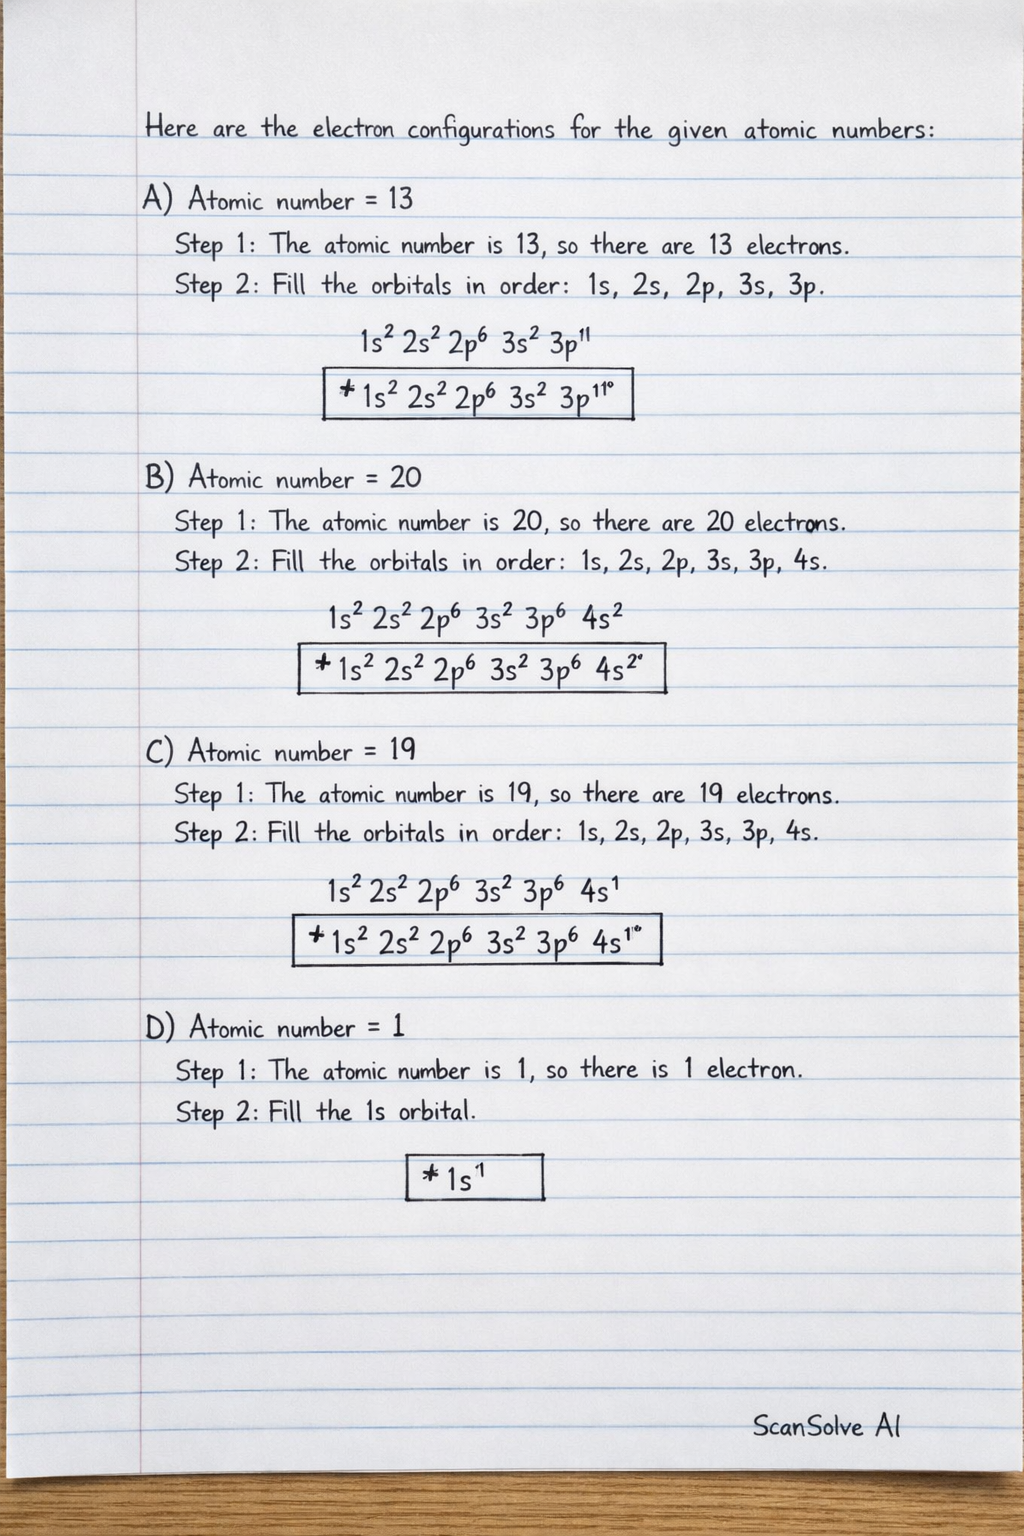 Here are the electron configurations for the given atomic numbers:
A) Atomic number = 13
Step 1: The atomic number is 13, so there are 13 electrons.
Step 2: Fill the orbitals in order: 1s, 2s, 2p, 3s, 3p.
1s² 2s² 2p⁶ 3s² 3p¹¹
* 1s² 2s² 2p⁶ 3s² 3p¹¹°
B) Atomic number = 20
Step 1: The atomic number is 20, so there are 20 electrons.
Step 2: Fill the orbitals in order: 1s, 2s, 2p, 3s, 3p, 4s.
1s² 2s² 2p⁶ 3s² 3p⁶ 4s²
* 1s² 2s² 2p⁶ 3s² 3p⁶ 4s²°
C) Atomic number = 19
Step 1: The atomic number is 19, so there are 19 electrons.
Step 2: Fill the orbitals in order: 1s, 2s, 2p, 3s, 3p, 4s.
1s² 2s² 2p⁶ 3s² 3p⁶ 4s¹
* 1s² 2s² 2p⁶ 3s² 3p⁶ 4s¹°
D) Atomic number = 1
Step 1: The atomic number is 1, so there is 1 electron.
Step 2: Fill the 1s orbital.
* 1s¹
ScanSolve AI